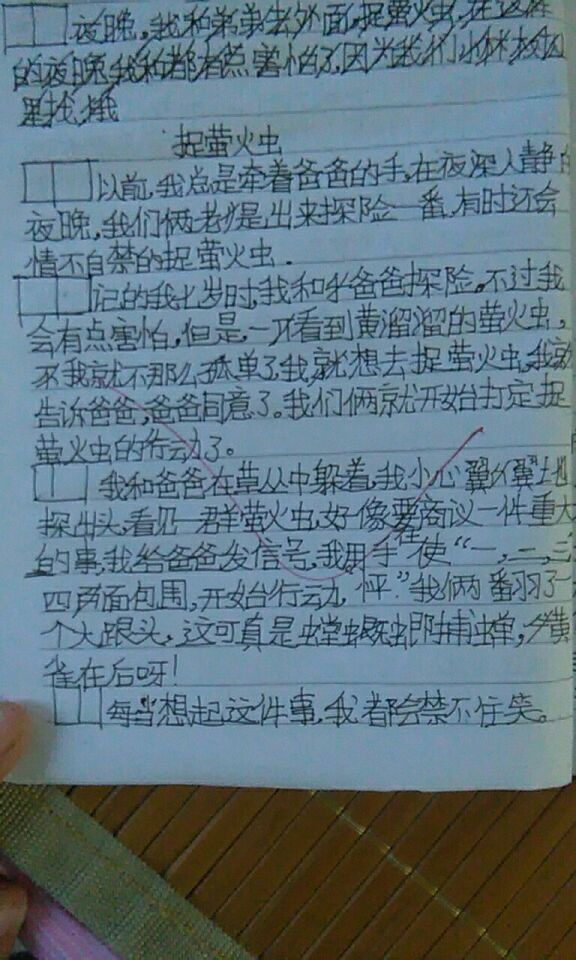 夜晚,我和弟弟去外面,捉萤火虫,在这样
的夜晚我和都有点害怕了,因为我们小林
里找,我
捉萤火虫
以前,我总是牵着爸爸的手,在夜深人静的
夜晚,我们俩老是出来探险一番,有时还会
情不自禁的捉萤火虫.
记的我七岁时,我和爸爸探险。不过我
会有点害怕,但是,一看到黄溜溜的萤火虫,
我就不那么孤单了,我就想去捉萤火虫,我就
告诉爸爸,爸爸同意了。我们俩就开始打定捉
萤火虫的行动了。
我和爸爸在草丛中躲着,我小心翼翼地
探出头,看见一群萤火虫,好像要在商议一件重大
的事,我给爸爸发信号,我用手使“一,二,三
四两面包围,开始行动,怦.”我俩番羽了一
个大跟头,这可真是螳螂捕蝉,黄
雀在后呀!
每当想起这件事,我都会禁不住笑。